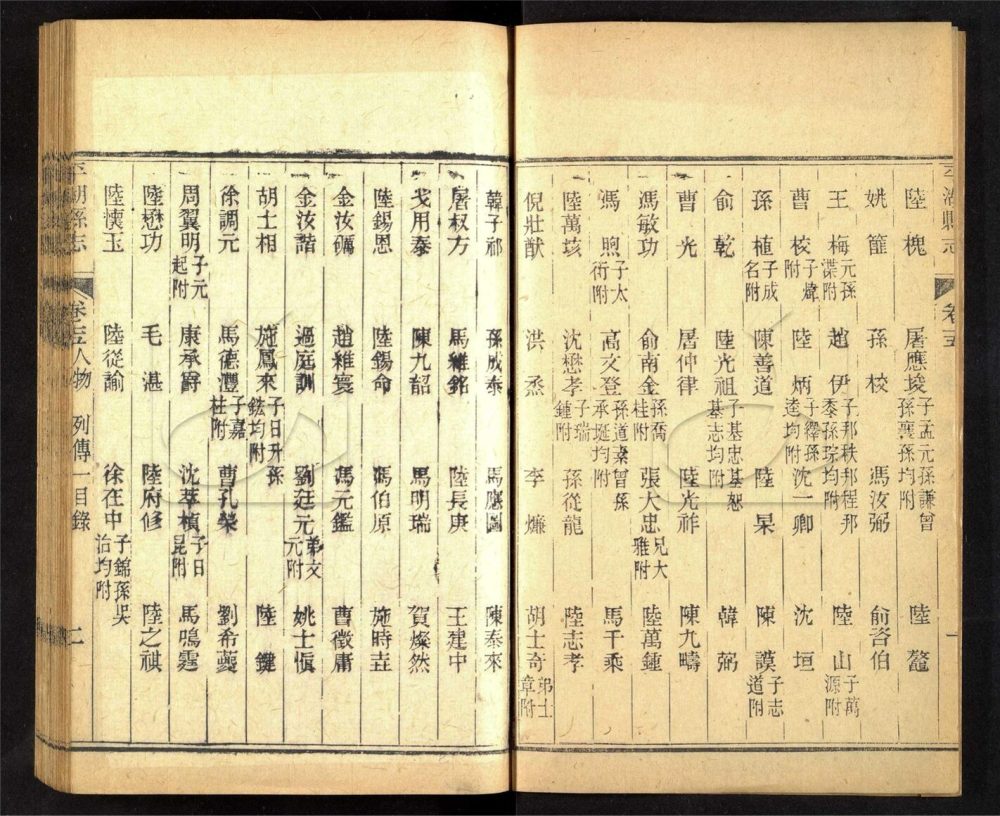 平湖縣志 卷十五 一
陸槐 屠應埈子孟元孫謙曾孫襄孫均附 陸鼇
姚篚 孫校 馮汝弼 俞咨伯
王梅元孫渫附 趙伊子邦秩邦程邦黍孫琮均附 陸山子萬源附
曹校子煒附 陸炳子繹孫逵均附 沈一卿 沈垣
孫植子成名附 陳善道 陸杲 陳謨子志道附
俞乾 陸光祖子基忠基恕基志均附 韓弼
曹光 屠仲律 陸光祚 陳九疇
馮敏功 俞南金孫喬桂附 張大忠兄大雅附 陸萬鍾
馮煦子太術附 高文登孫道素曾孫承埏均附 馬千乘
陸萬垓 沈懋孝子瑞鍾附 孫從龍 陸志孝
倪壯猷 洪烝 李㷿 胡士奇弟士章附
韓子祁 孫成泰 馬應圖 陳泰來
屠叔方 馬維銘 陸長庚 王建中
戈用泰 陳九韶 馬明瑞 賀燦然
陸錫恩 陸錫命 馮伯原 施時㚖
金汝礪 趙維寰 馮元鑑 曹徵庸
金汝諧 過庭訓 劉廷元弟文元附 姚士慎
胡士相 施鳳來子日升孫鋐均附 陸鍵
徐調元 馬德灃子嘉柱附 曹孔榮 劉希夔
周翼明子元起附 康承爵 沈萃楨子日昆附 馬鳴霆
陸懋功 毛湛 陸府修 陸之祺
陸懷玉 陸從諭 徐在中子錦孫吳治均附
平湖縣志 卷十五 人物 列傳一目錄 二